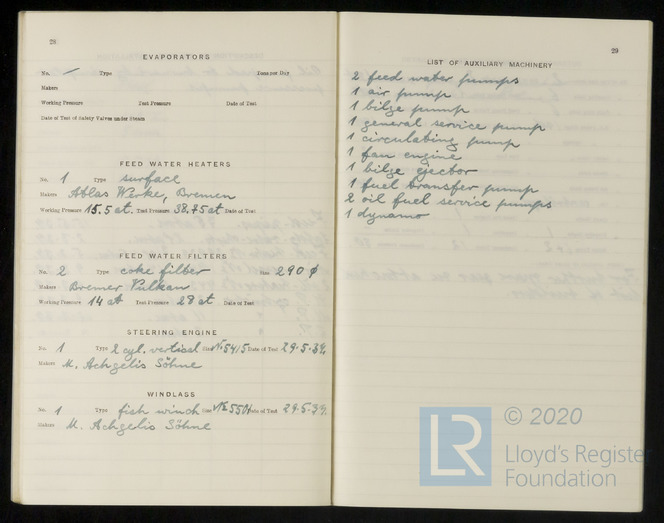 28
EVAPORATORS
No. — Type Tons per Day
Makers
Working Pressure Test Pressure Date of Test
Date of Test of Safety Valves under Steam
FEED WATER HEATERS
No. 1 Type surface
Makers Atlas Werke, Bremen
Working Pressure 15.5 at. Test Pressure 38.75 at Date of Test
FEED WATER FILTERS
No. 2 Type coke filter Size 290 ϕ
Makers Bremer Vulkan
Working Pressure 14 at Test Pressure 28 at Date of Test
STEERING ENGINE
No. 1 Type 2 cyl. vertical Size № 5415 Date of Test 29.5.39.
Makers M. Achgelis Söhne
WINDLASS
No. 1 Type fish winch Size Date of Test 29.5.39.
Makers M. Achgelis Söhne
29
LIST OF AUXILIARY MACHINERY
2 feed water pumps
1 air pump
1 bilge pump
1 general service pump
1 circulating pump
1 fan engine
1 bilge ejector
1 fuel transfer pump
2 oil fuel service pumps
1 dynamo
LR © 2020
Lloyd's Register
Foundation